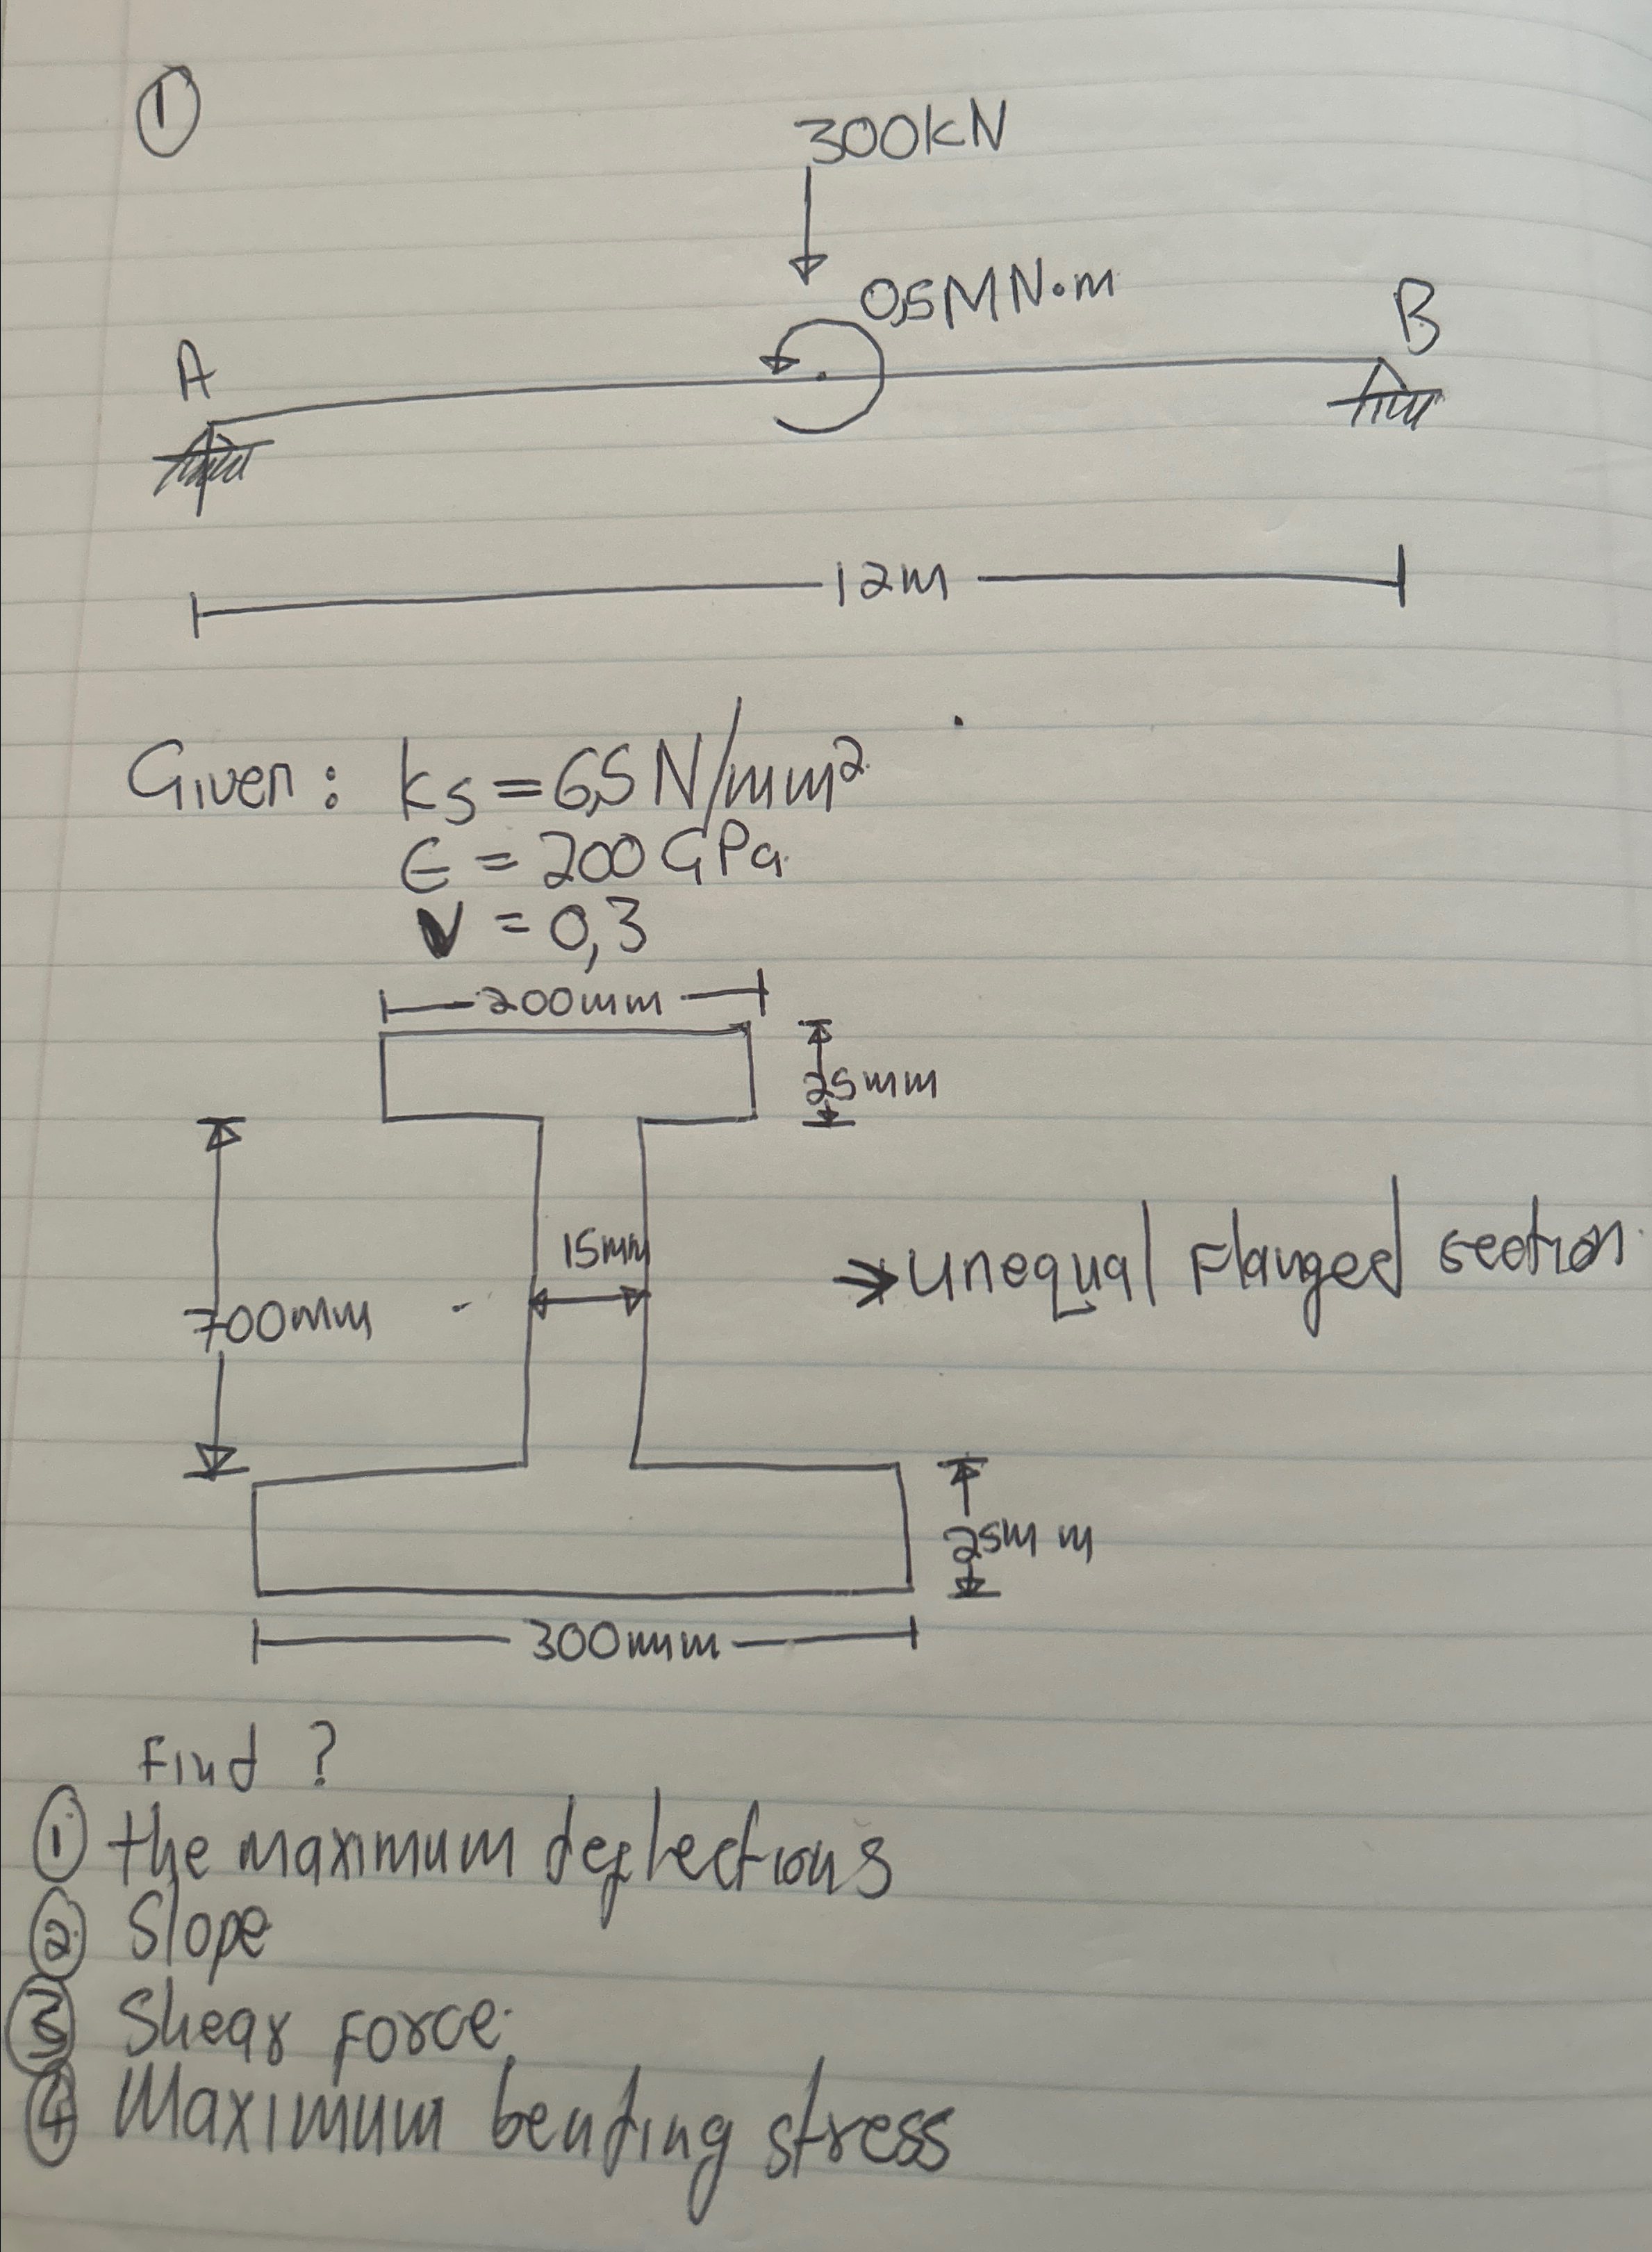 ①
300kN
0,5MN·m
A
B
12m
Given: ks = 6,5 N/mm²
E = 200 GPa
ν = 0,3
200mm
25mm
15mm
→ unequal Flanged section.
700mm
25mm
300mm
Find ?
① the maximum deflections
② Slope
③ Shear force.
④ Maximum bending stress